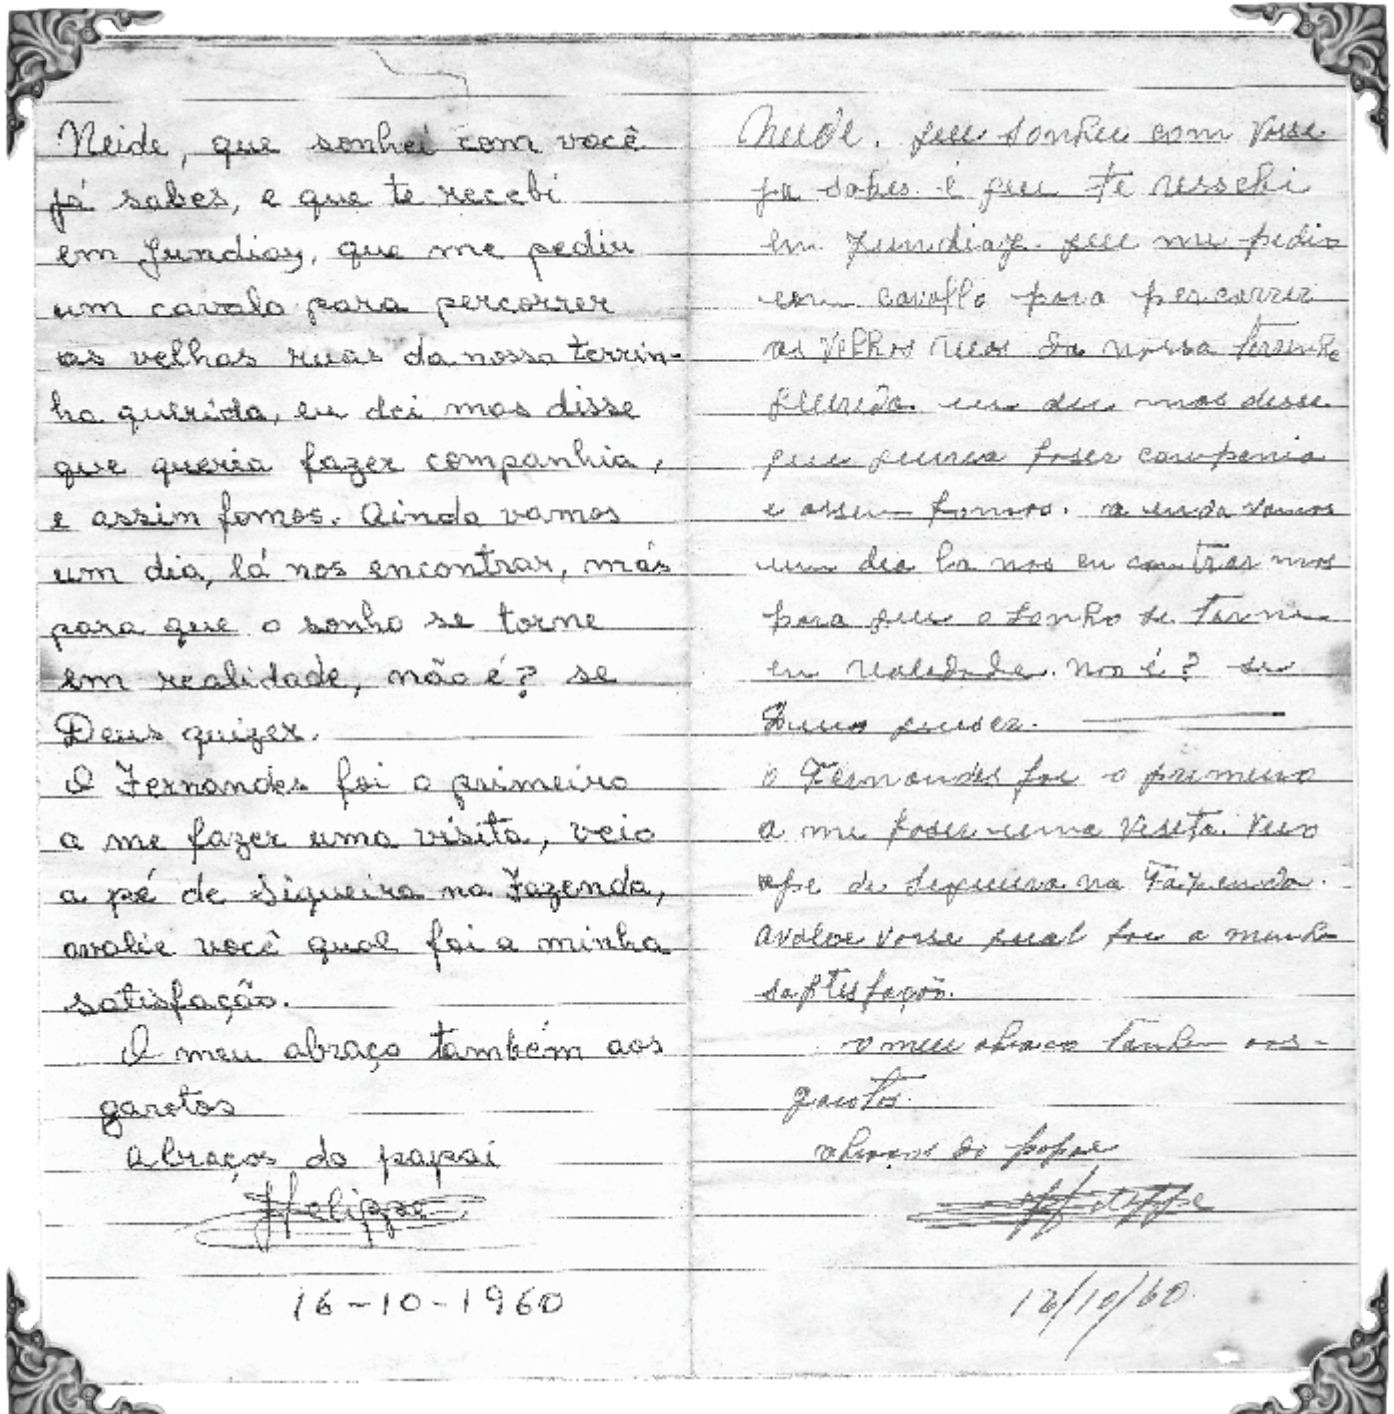 Neide, que sonhei com você
já sabes, e que te recebi
em Jundiay, que me pediu
um cavalo para percorrer
as velhas ruas da nossa terrin-
ha querida, eu dei mas disse
que queria fazer companhia,
e assim fomos. Ainda vamos
um dia, lá nos encontrar, más
para que o sonho se torne
em realidade, não é? se
Deus quizer.
O Fernandes foi o primeiro
a me fazer uma visita, veio
a pé de Siqueira na Fazenda,
avalie você qual foi a minha
satisfação.
O meu abraço também aos
garotos
Abraços do papai
Felippe
16-10-1960
Neide. que sonhei com vosse
ja sabes e que te ressebi
em Jundiay. que me pedio
um cavallo para percorrer
as velhas ruas da nossa
querida. eu dei mas disse
que queria faser compania
e assim fomos. a inda vamos
um dia la nos en contrar mos
para que o sonho se torne
em realidade. não é? se
Deus quiser.
o Fernandes foi o primeiro
a me faser uma visita. veio
ape de Sequeira na Fazenda.
avalie vosse qual foi a minha
saptisfação.
o meu abraço tanbem aos-
garotos.
abraços do papae
Felippe
16/10/60.